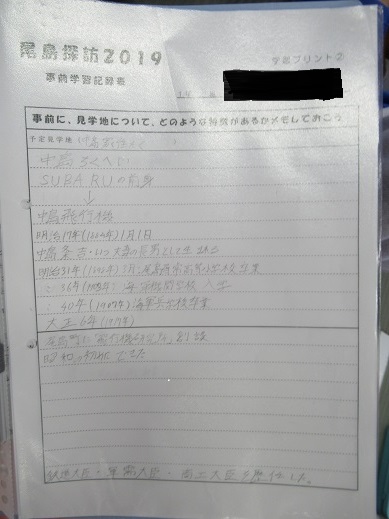 尾島探訪2019
学習プリント②
事前学習記録表
事前に、見学地について、どのような特徴があるかメモしておこう
予定見学地
中島
SUBARUの前身
↓
中島飛行機
明治17年(1884年)1月1日
中島粂吉・いつ 夫妻の長男として生まれ
明治31年 卒業
〃 36年(1903年) 海軍機関学校 入学
〃 40年(1907年) 海軍 卒業
大正6年(1917年)
尾島町に「飛行機研究所」創設
昭和の初めにできた
鉄道大臣・軍需大臣・商工大臣を歴任した。